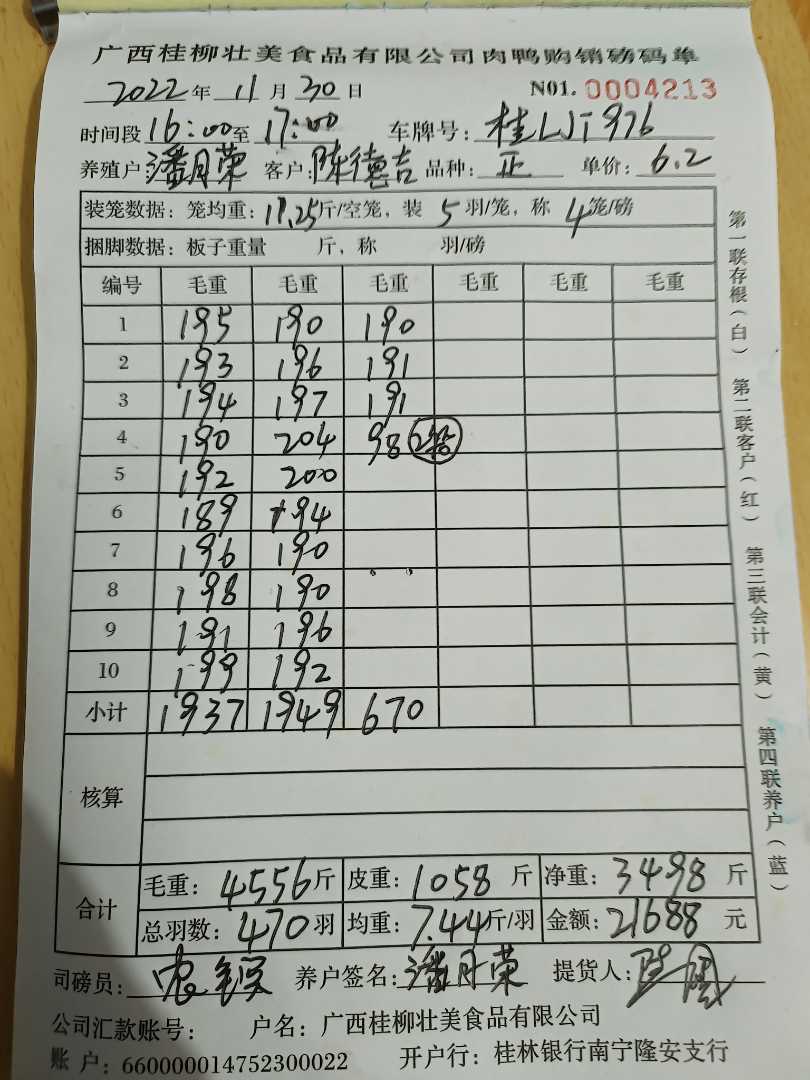 广西桂柳壮美食品有限公司肉鸭购销磅码单
2022年 11月 30日 N01. 0004213
时间段16:00至17:00 车牌号: 桂LJT976
养殖户:潘月荣 客户:陈德吉 品种: 正 单价: 6.2
装笼数据: 笼均重:11.25斤/空笼, 装 5 羽/笼, 称 4笼/磅
捆脚数据: 板子重量 斤, 称 羽/磅
编号 毛重 毛重 毛重 毛重 毛重 毛重
1 195 190 190
2 193 196 191
3 194 197 191
4 190 204 98 2笼
5 192 200
6 189 194
7 196 190
8 198 190
9 191 196
10 199 192
小计 1937 1949 670
核算
合计
毛重: 4556斤 皮重: 1058 斤 净重: 3498 斤
总羽数: 470羽 均重: 7.44斤/羽 金额: 21688 元
司磅员: 养户签名: 潘月荣 提货人:
公司汇款账号: 户名: 广西桂柳壮美食品有限公司
账 户: 660000014752300022 开户行: 桂林银行南宁隆安支行
第一联存根(白) 第二联客户(红) 第三联会计(黄) 第四联养户(蓝)